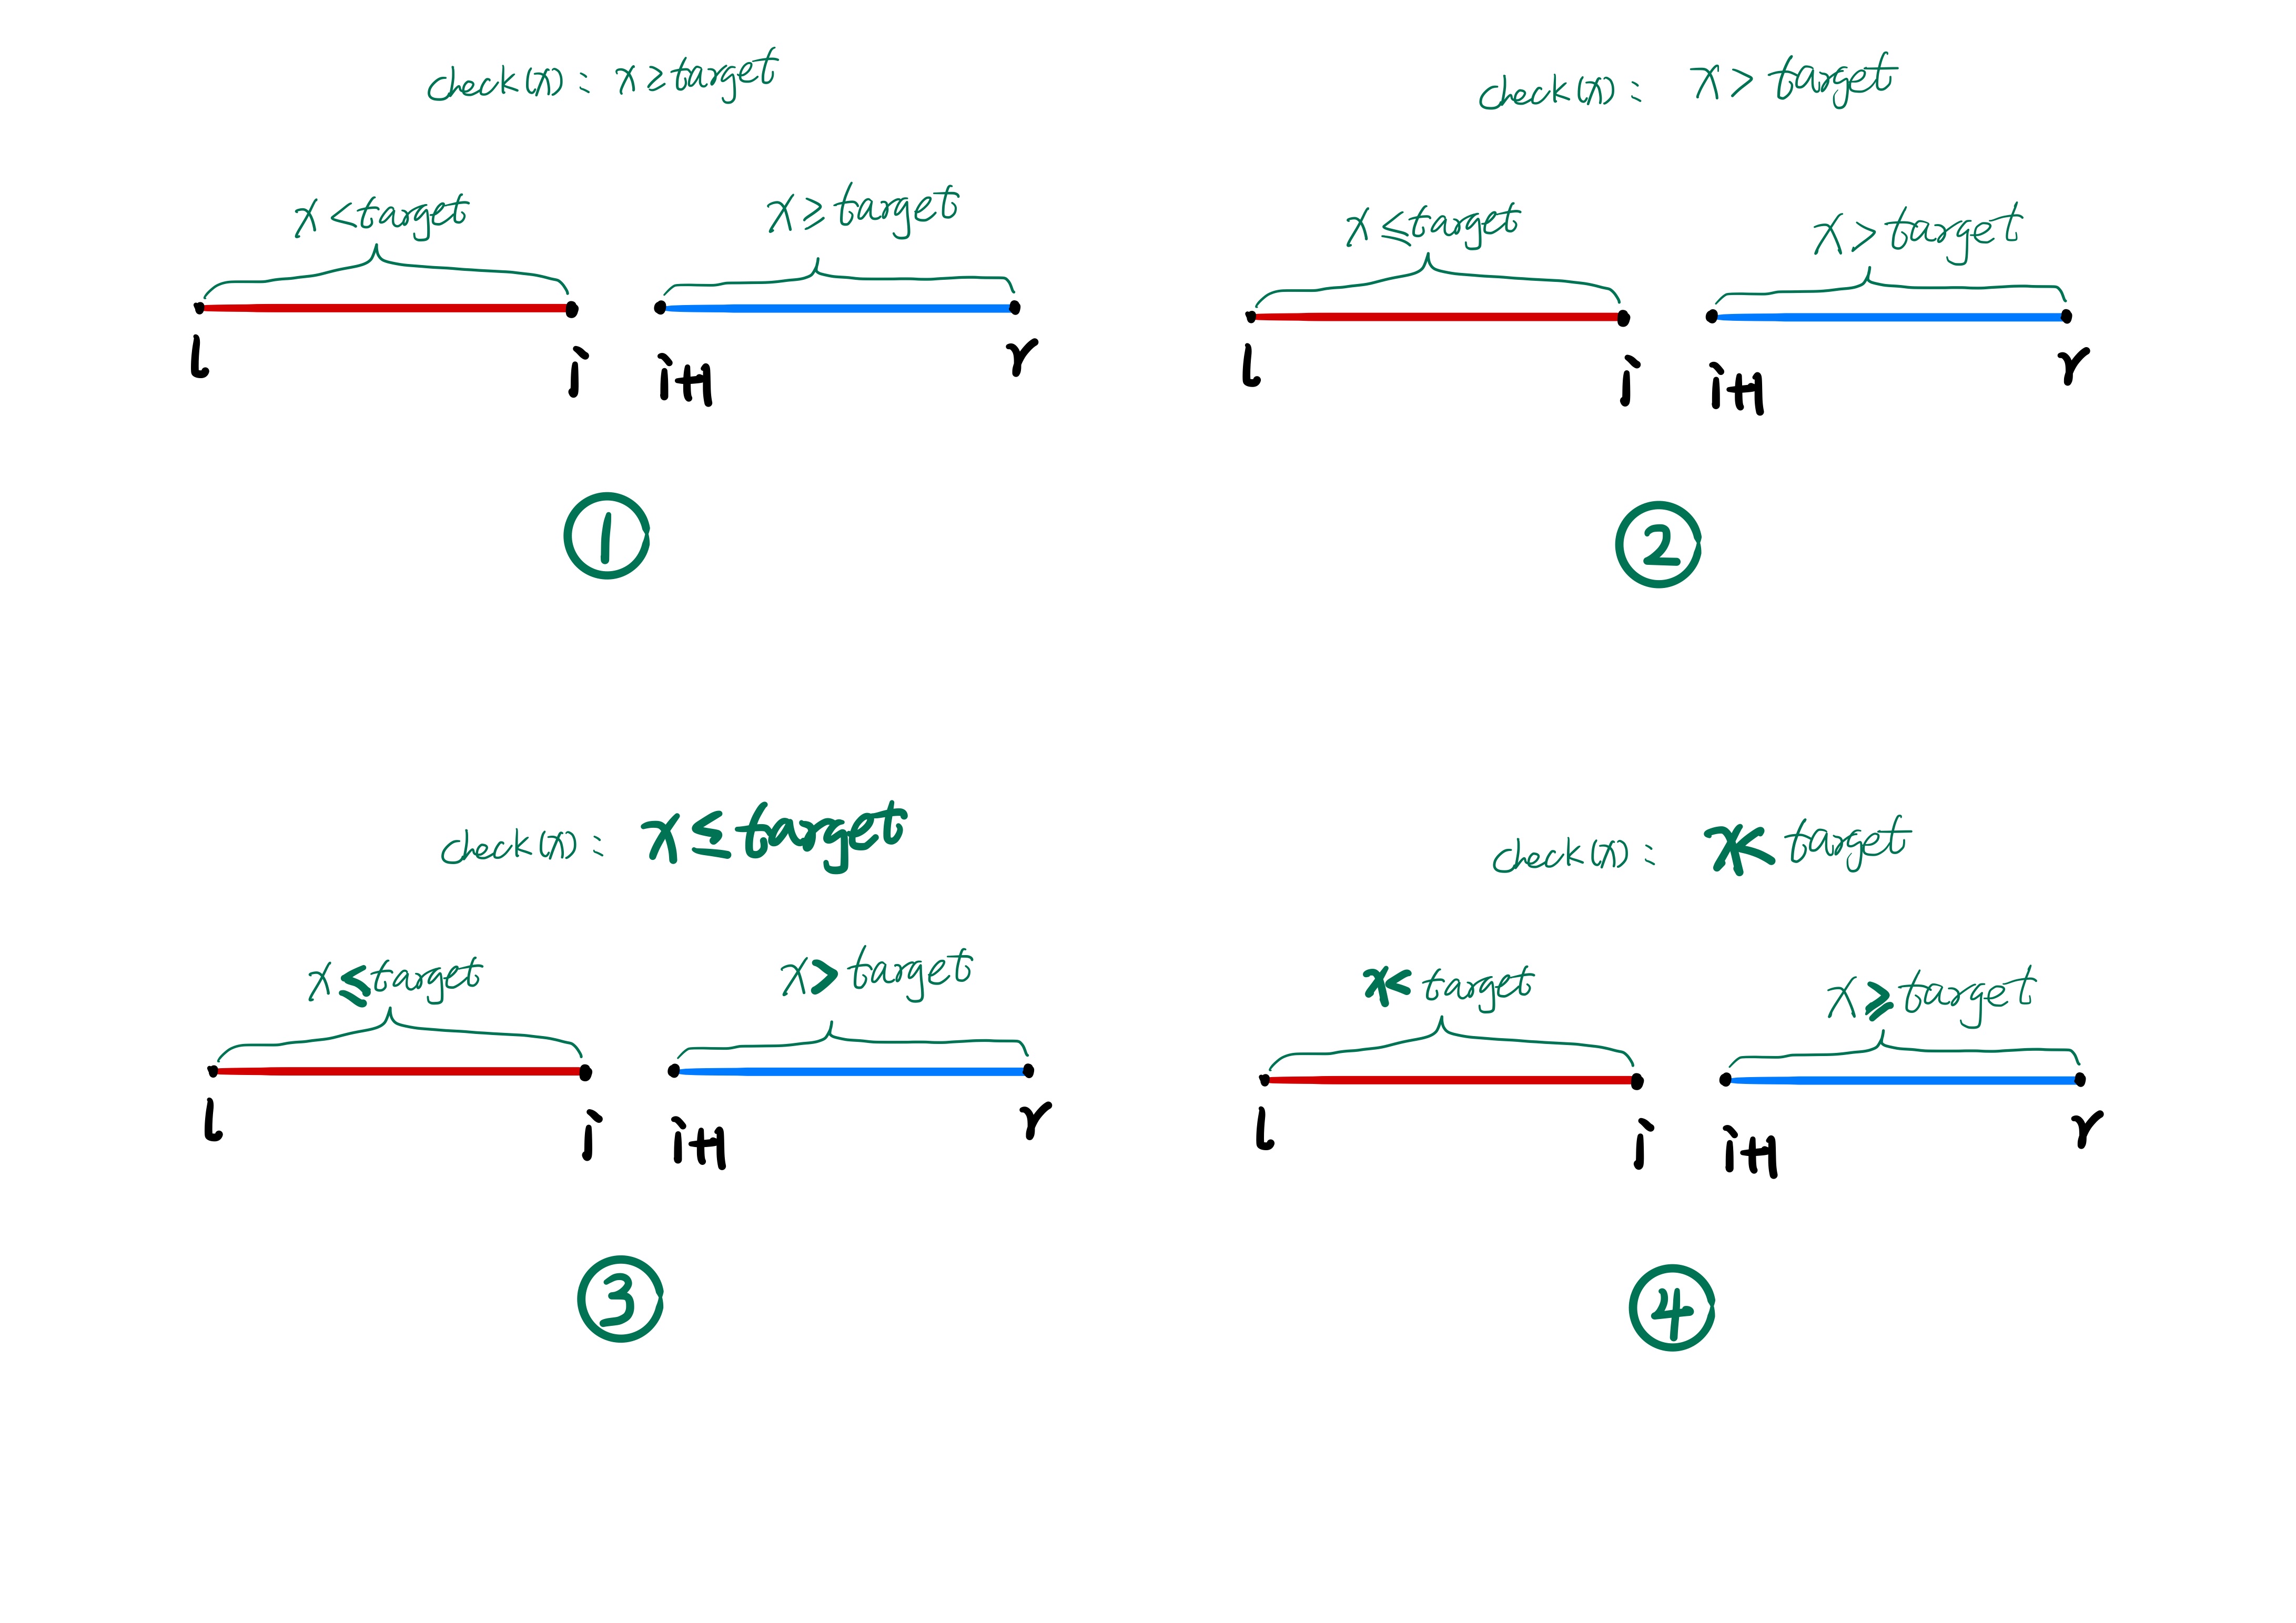 check(x): x≥target
x<target
x≥target
l
i
i+1
r
①
check(x): x>target
x≤target
x>target
l
i
i+1
r
②
check(x): x≤target
x≤target
x>target
l
i
i+1
r
③
check(x): x<target
x<target
x≥target
l
i
i+1
r
④